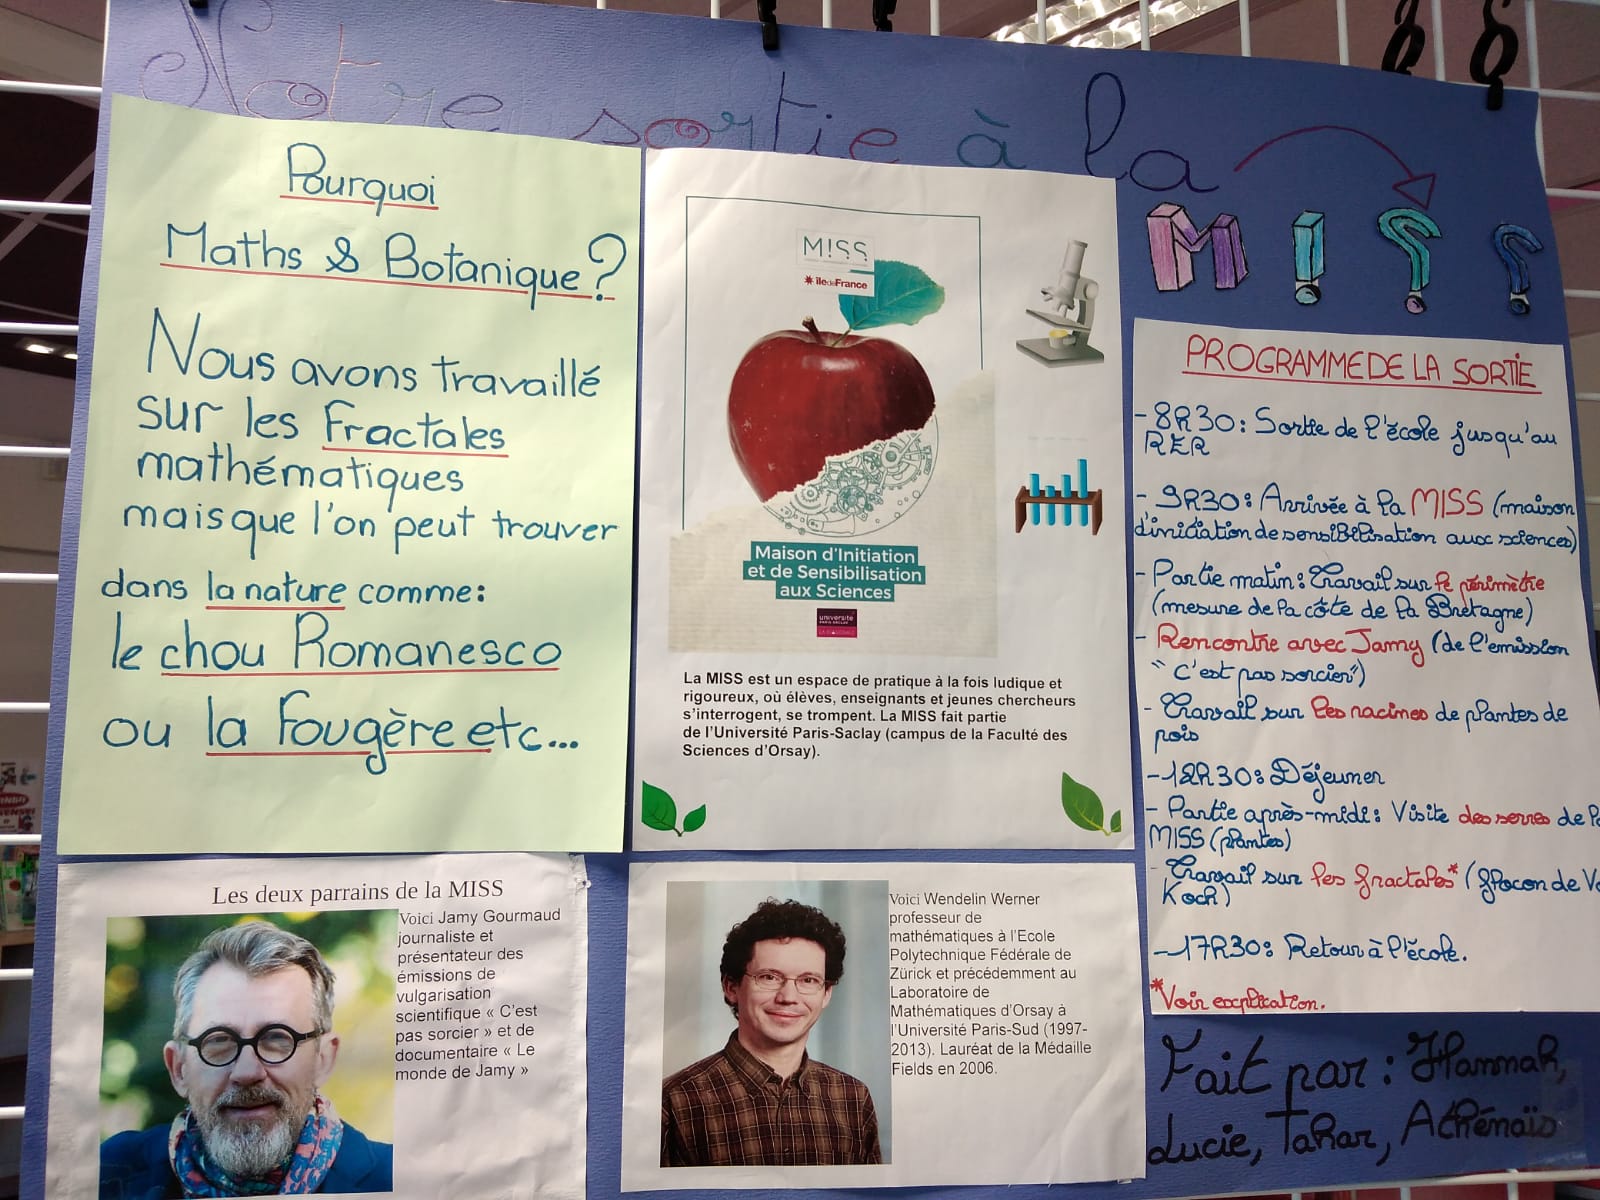 Notre sortie à la
M!SS
Pourquoi
Maths & Botanique?
Nous avons travaillé
sur les Fractales
mathématiques
mais que l'on peut trouver
dans la nature comme:
le chou Romanesco
ou la Fougère etc...
M!SS
île de France
Maison d'Initiation
et de Sensibilisation
aux Sciences
université
PARIS-SACLAY
La MISS est un espace de pratique à la fois ludique et
rigoureux, où élèves, enseignants et jeunes chercheurs
s'interrogent, se trompent. La MISS fait partie
de l'Université Paris-Saclay (campus de la Faculté des
Sciences d'Orsay).
PROGRAMME DE LA SORTIE
- 8h30: Sortie de l'école jusqu'au
RER
- 9h30: Arrivée à la MISS (maison
d'iniciation de sensibilisation aux sciences)
- Partie matin: Travail sur le périmètre
(mesure de la côte de la Bretagne)
- Rencontre avec Jamy (de l'emission
"C'est pas sorcier")
- Travail sur les racines de plantes de
pois
- 12h30: Déjeuner
- Partie après-midi: Visite des serres de
MISS (plantes)
- Travail sur les fractales* (flocon de
Koch)
- 17h30: Retour à l'école.
*Voir explication.
Les deux parrains de la MISS
Voici Jamy Gourmaud
journaliste et
présentateur des
émissions de
vulgarisation
scientifique « C'est
pas sorcier » et de
documentaire « Le
monde de Jamy »
Voici Wendelin Werner
professeur de
mathématiques à l'Ecole
Polytechnique Fédérale de
Zürick et précédemment au
Laboratoire de
Mathématiques d'Orsay à
l'Université Paris-Sud (1997-
2013). Lauréat de la Médaille
Fields en 2006.
Fait par: Hannah,
Lucie, Tahar, Athénaïs